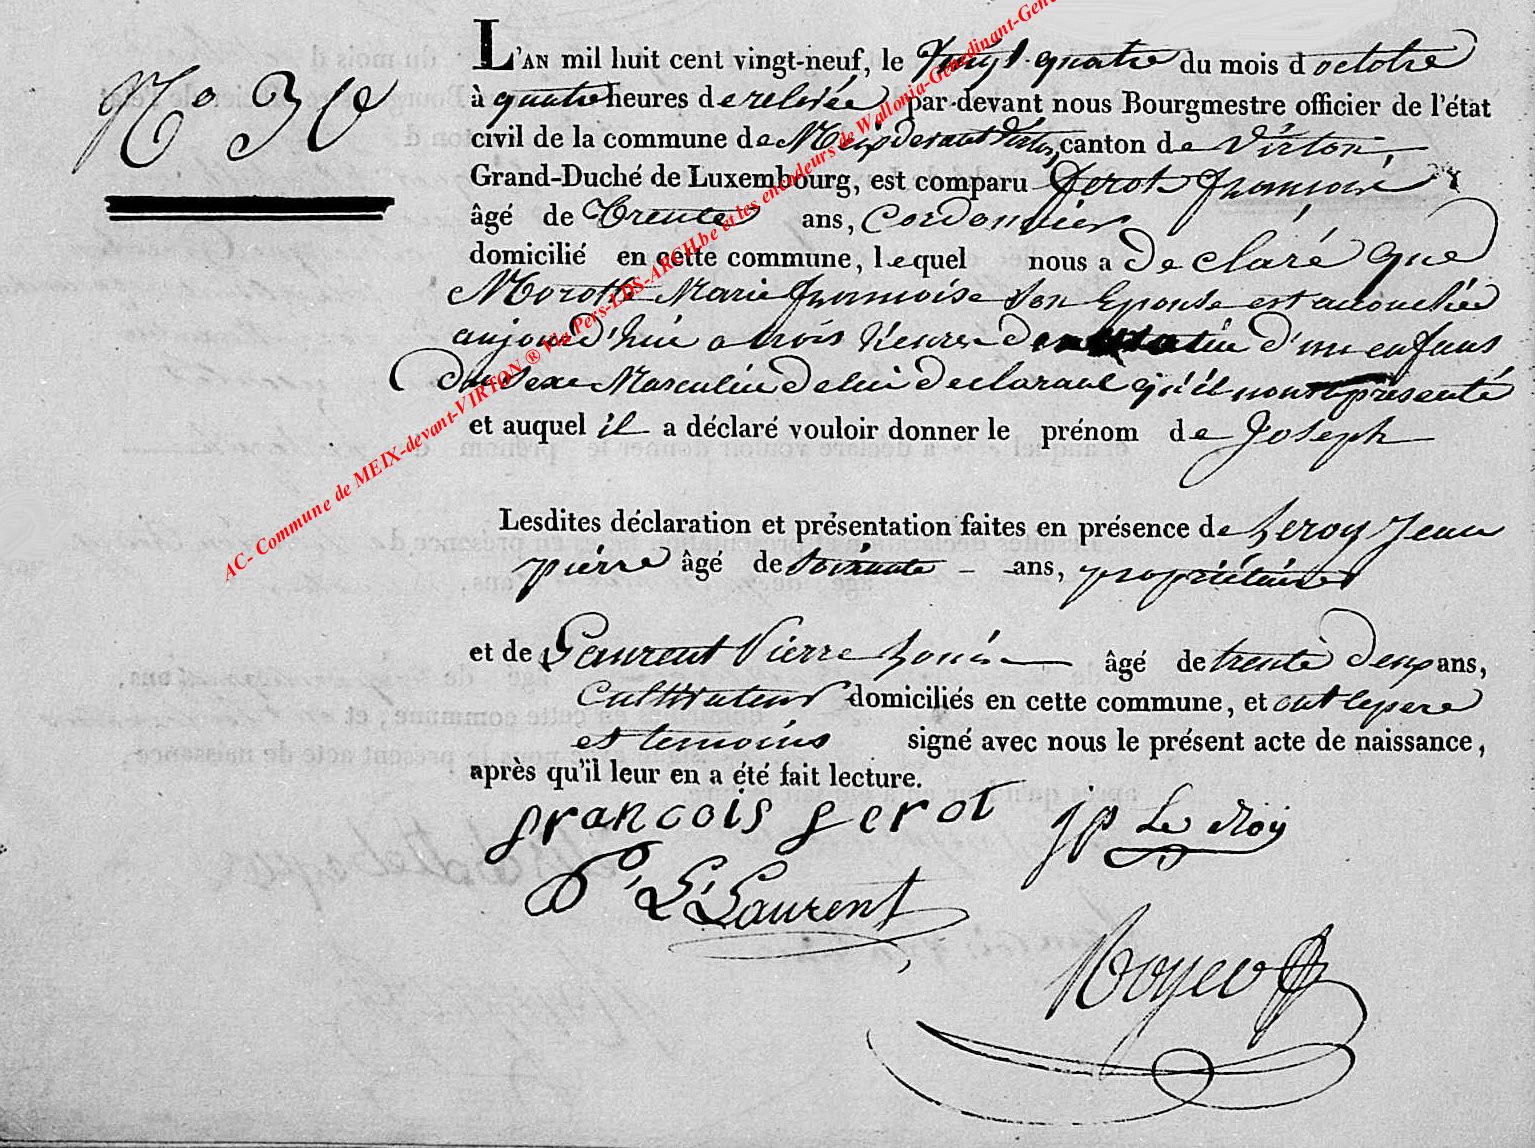 N° 30
L'AN mil huit cent vingt-neuf, le Vingt-quatre du mois d octobre
à quatre heures de relevée par-devant nous Bourgmestre officier de l'état
civil de la commune de Meix devant Virton, canton de Virton,
Grand-Duché de Luxembourg, est comparu Gerot François
âgé de Trente ans, Cordonnier
domicilié en cette commune, lequel nous a declaré que
Morotte Marie françoise son Epouse est accouchée
aujourd'hui a trois heures du matin d'un enfans
du sexe Masculin de lui declarant qu'il nous a présenté
et auquel il a déclaré vouloir donner le prénom de Joseph
Lesdites déclaration et présentation faites en présence de Leroy Jean
pierre âgé de soixante ans, propriétaire
et de Laurent Pierre Louis âgé de trente deux ans,
Cultivateur domiciliés en cette commune, et ont le pere
et temoins signé avec nous le présent acte de naissance,
après qu'il leur en a été fait lecture.
françois gerot jp Le Roy
P. L. Laurent
AC- Commune de MEIX-devant-VIRTON ® via Pers-LDS-ARCH.be et les encodeurs de Wallonia-Genedinant-Gene